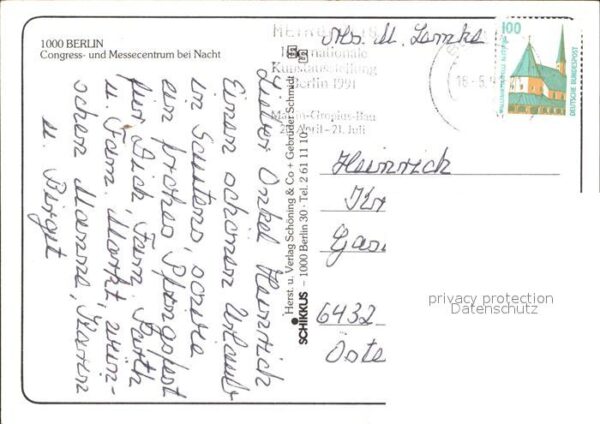 1000 BERLIN
Congress- und Messecentrum bei Nacht
Abs. M. Lemke
Internationale
Kunstausstellung
Berlin 1991
Martin-Gropius-Bau
20. April - 21. Juli
16-5.
100
DEUTSCHE BUNDESPOST
Lieber Onkel Heinrich
Einen schönen Urlaub
in Sautens, sowie
ein frohes Pfingstfest
für Dich, Fam.
u. Fam. Markt, wün-
schen Manne, Karen
u. Birgit
Herst. u. Verlag Schöning & Co + Gebrüder Schmidt
SCHIKKUS – 1000 Berlin 30 · Tel. 2 61 11 10
Heinrich
6432
Öste
privacy protection
Datenschutz